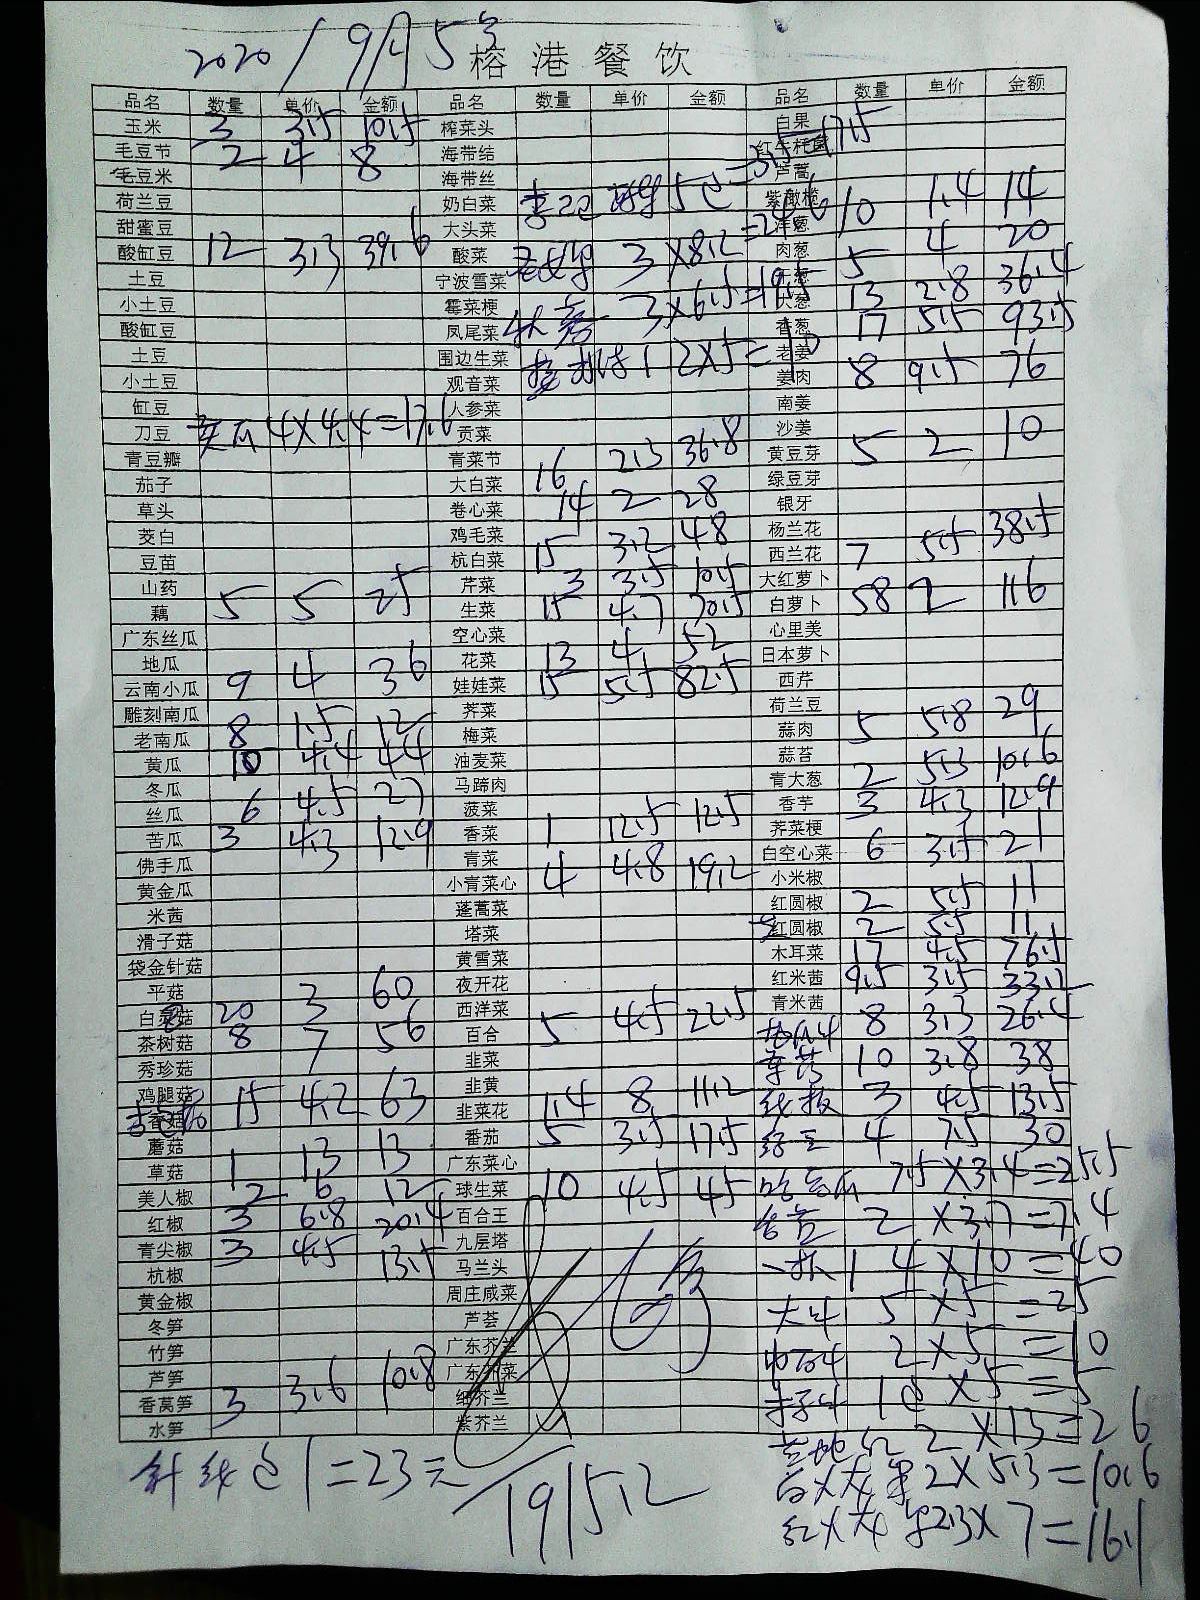 2020/9月5号
榕港餐饮
品名 数量 单价 金额 品名 数量 单价 金额 品名 数量 单价 金额
玉米 3 3.5 10.5 榨菜头 白果
毛豆节 2 4 8 海带结 红牛杆菌
毛豆米 海带丝 芦蒿
荷兰豆 奶白菜 5包=35 17.5 紫橄榄 10 1.4 14
甜蜜豆 大头菜 洋葱
酸缸豆 12 3.3 39.6 酸菜 3×8.2=24.6 肉葱 5 4 20
土豆 宁波雪菜 大葱 13 2.8 36.4
小土豆 霉菜梗 3×6.5=19.5 香葱 17 5.5 93.5
酸缸豆 凤尾菜 老姜
土豆 围边生菜 2×5=10 姜肉 8 9.5 76
小土豆 观音菜 南姜
缸豆 人参菜 沙姜
刀豆 瓜 4×4.4=17.6 贡菜 黄豆芽 5 2 10
青豆瓣 青菜节 16 2.3 36.8 绿豆芽
茄子 大白菜 14 2 28 银牙
草头 卷心菜 杨兰花
茭白 鸡毛菜 15 3.2 48 西兰花 7 5.5 38.5
豆苗 杭白菜 大红萝卜
山药 芹菜 3 3.5 10.5 白萝卜 58 2 116
藕 5 5 25 生菜 15 4.7 70.5 心里美
广东丝瓜 空心菜 日本萝卜
地瓜 花菜 13 4 52 西芹
云南小瓜 9 4 36 娃娃菜 15 5.5 82.5 荷兰豆
雕刻南瓜 荠菜 蒜肉 5 5.8 29
老南瓜 8 1.5 12 梅菜 蒜苔
黄瓜 10 4.4 44 油麦菜 青大葱 2 5.3 10.6
冬瓜 马蹄肉 香芋 3 4.3 12.9
丝瓜 6 4.5 27 菠菜 荠菜梗
苦瓜 3 4.3 12.9 香菜 1 12.5 12.5 白空心菜 6 3.5 21
佛手瓜 青菜 小米椒
黄金瓜 小青菜心 4 4.8 19.2 红圆椒 2 5.5 11
米茜 蓬蒿菜 红圆椒 2 5.5 11
滑子菇 塔菜 木耳菜 17 4.5 76.5
袋金针菇 黄雪菜 红米茜 9.5 3.5 33.2
平菇 夜开花 青米茜 8 3.3 26.4
白灵菇 20 3 60 西洋菜 10 3.8 38
茶树菇 8 7 56 百合 5 4.5 22.5
秀珍菇 韭菜 3 4.5 13.5
鸡腿菇 韭黄 4 7.5 30
香菇 15 4.2 63 韭菜花 1.4 8 11.2
蘑菇 番茄 5 3.5 17.5 7.5×3.4=25.5
草菇 1 13 13 广东菜心 2×3.7=7.4
美人椒 2 6 12 球生菜 10 4.5 45
红椒 3 6.8 20.4 百合王 4×10=40
青尖椒 3 4.5 13.5 九层塔 5×5=25
杭椒 马兰头 2×5=10
黄金椒 周庄咸菜 1包×5=5
冬笋 芦荟 2×13=26
竹笋 广东芥兰 2×5.3=10.6
芦笋 广东芥菜 2.3×7=16.1
香莴笋 3 3.6 10.8 细芥兰
水笋 紫芥兰
针线包1=23元
1915.2